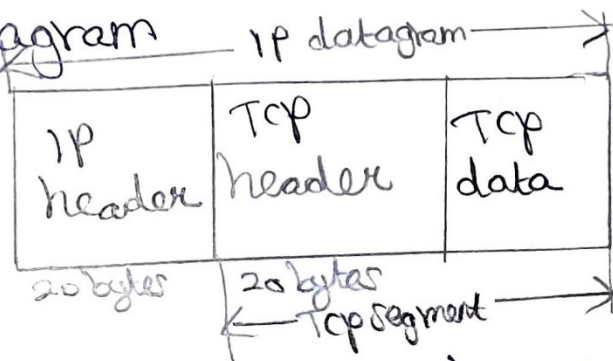 agram
IP datagram
IP header
TCP header
TCP data
20 bytes
20 bytes
TCP segment